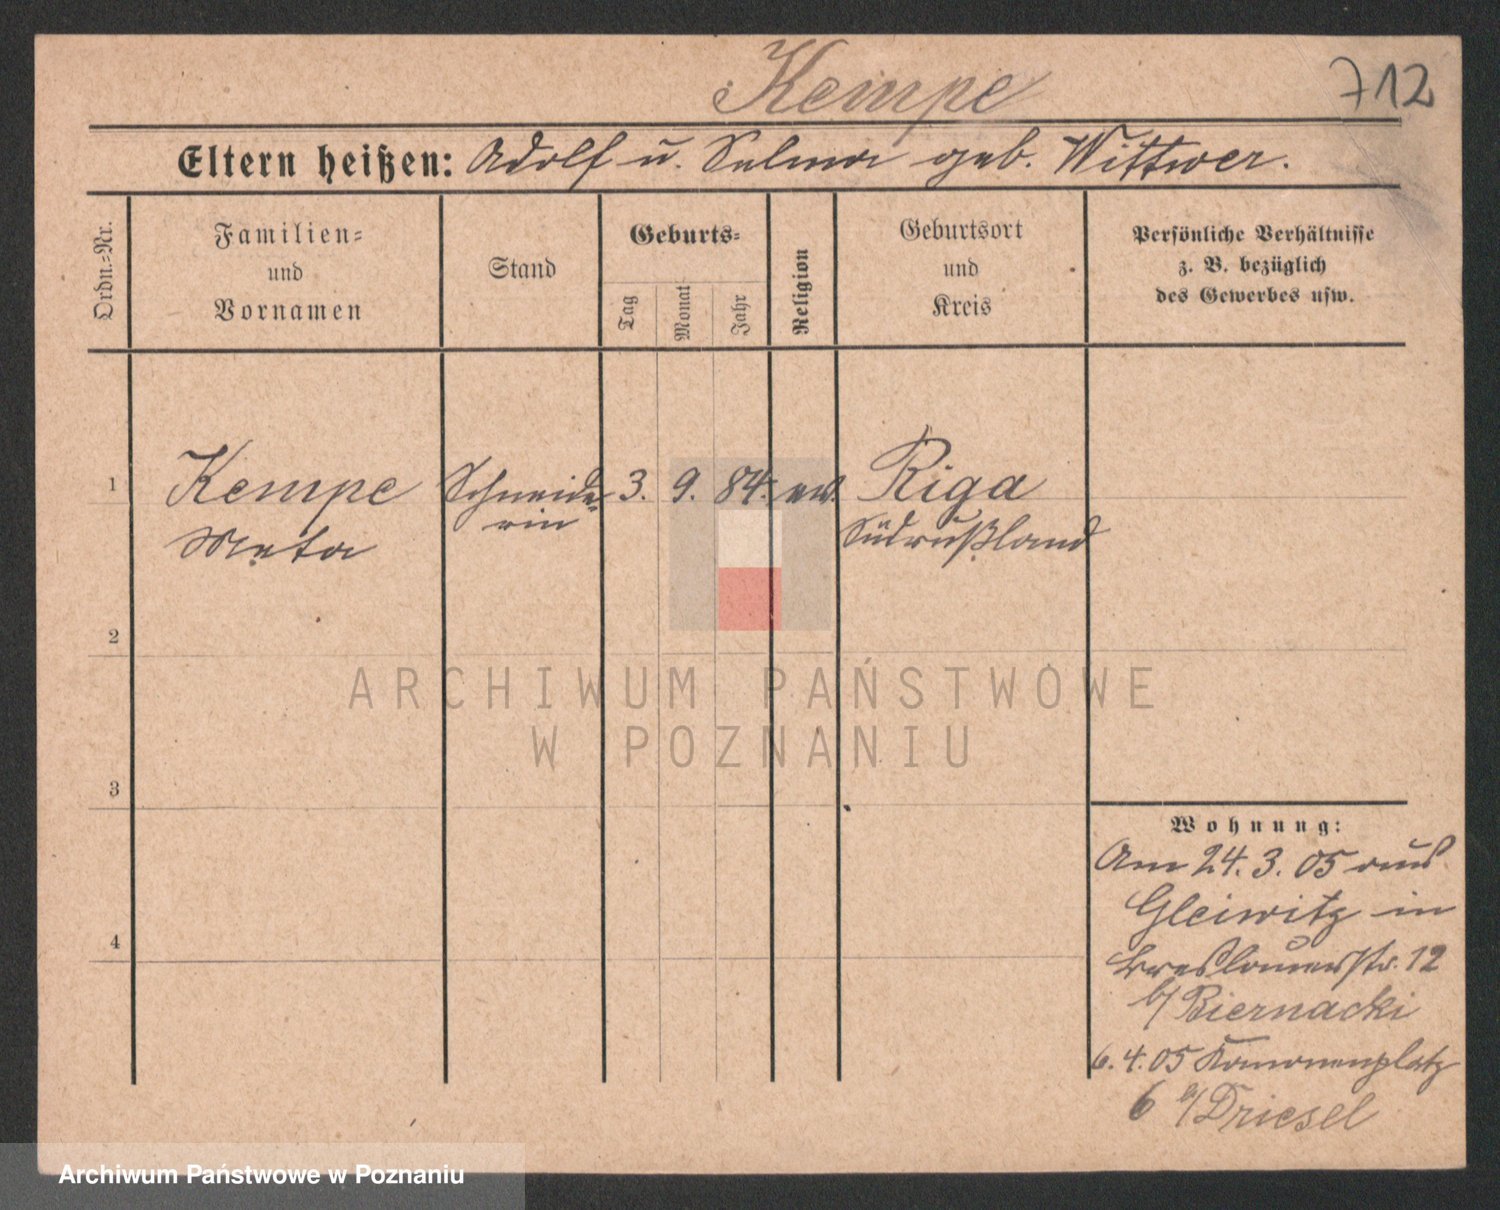 Kempe
712
Eltern heißen: Adolf u. Selma geb. Wittwer.
Ordn.-Nr.
Familien-
und
Vornamen
Stand
Geburts-
Tag
Monat
Jahr
Religion
Geburtsort
und
Kreis
Persönliche Verhältnisse
z. B. bezüglich
des Gewerbes usw.
1
Kempe
Meta
Schneide-
rin
3. 9. 84. ev.
Riga
Südrußland
2
3
4
Wohnung:
Am 24. 3. 05 aus
Gleiwitz in
Breslauerstr. 12
b/ Biernacki
6. 4. 05 Kanonenplatz
6 b/ Driesel
ARCHIWUM PAŃSTWOWE
W POZNANIU
Archiwum Państwowe w Poznaniu